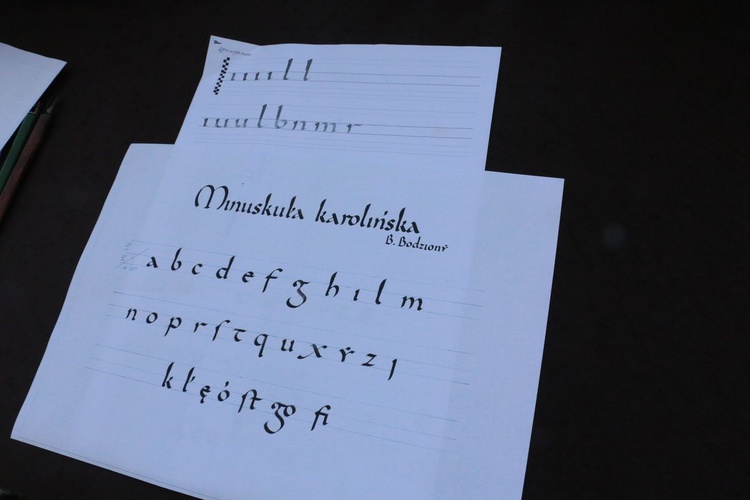 ıuuıll
ıuulbnmr
Mınuskuła karolıńska
B. Bodzıony
a b c d e f g h ı l m
n o p r ſ τ q u x ẏ z j
k ł ę ó ſt go fi